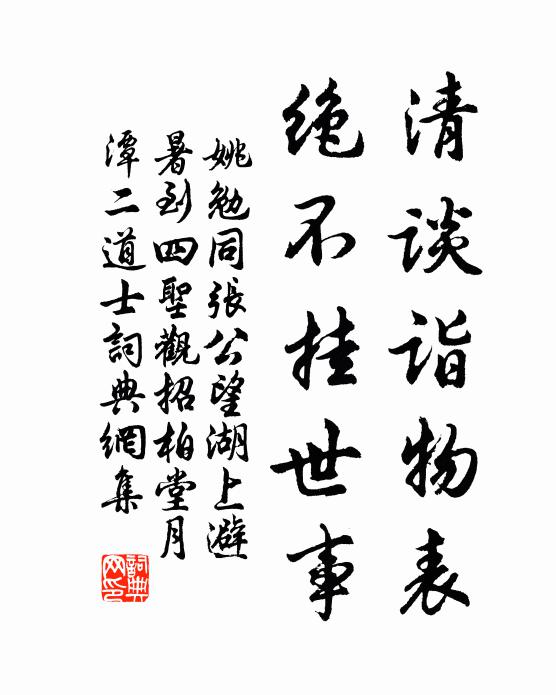 清談詣物表
絶不挂世事
姚勉同張公望湖上避
暑到四聖觀招柏堂月
潭二道士詞典網集
詞典
网印